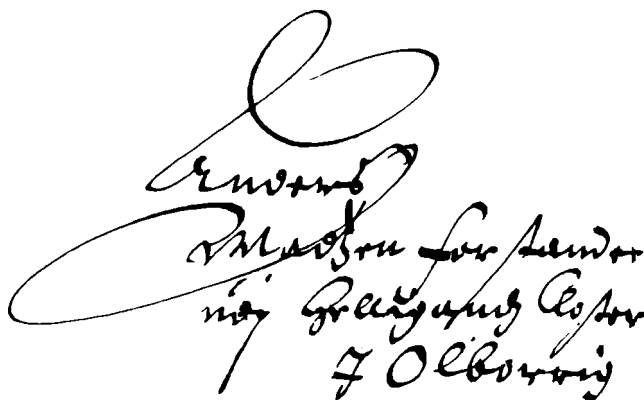 Anders
Madzen forstander
udj Helligands Closter
J Olborrig